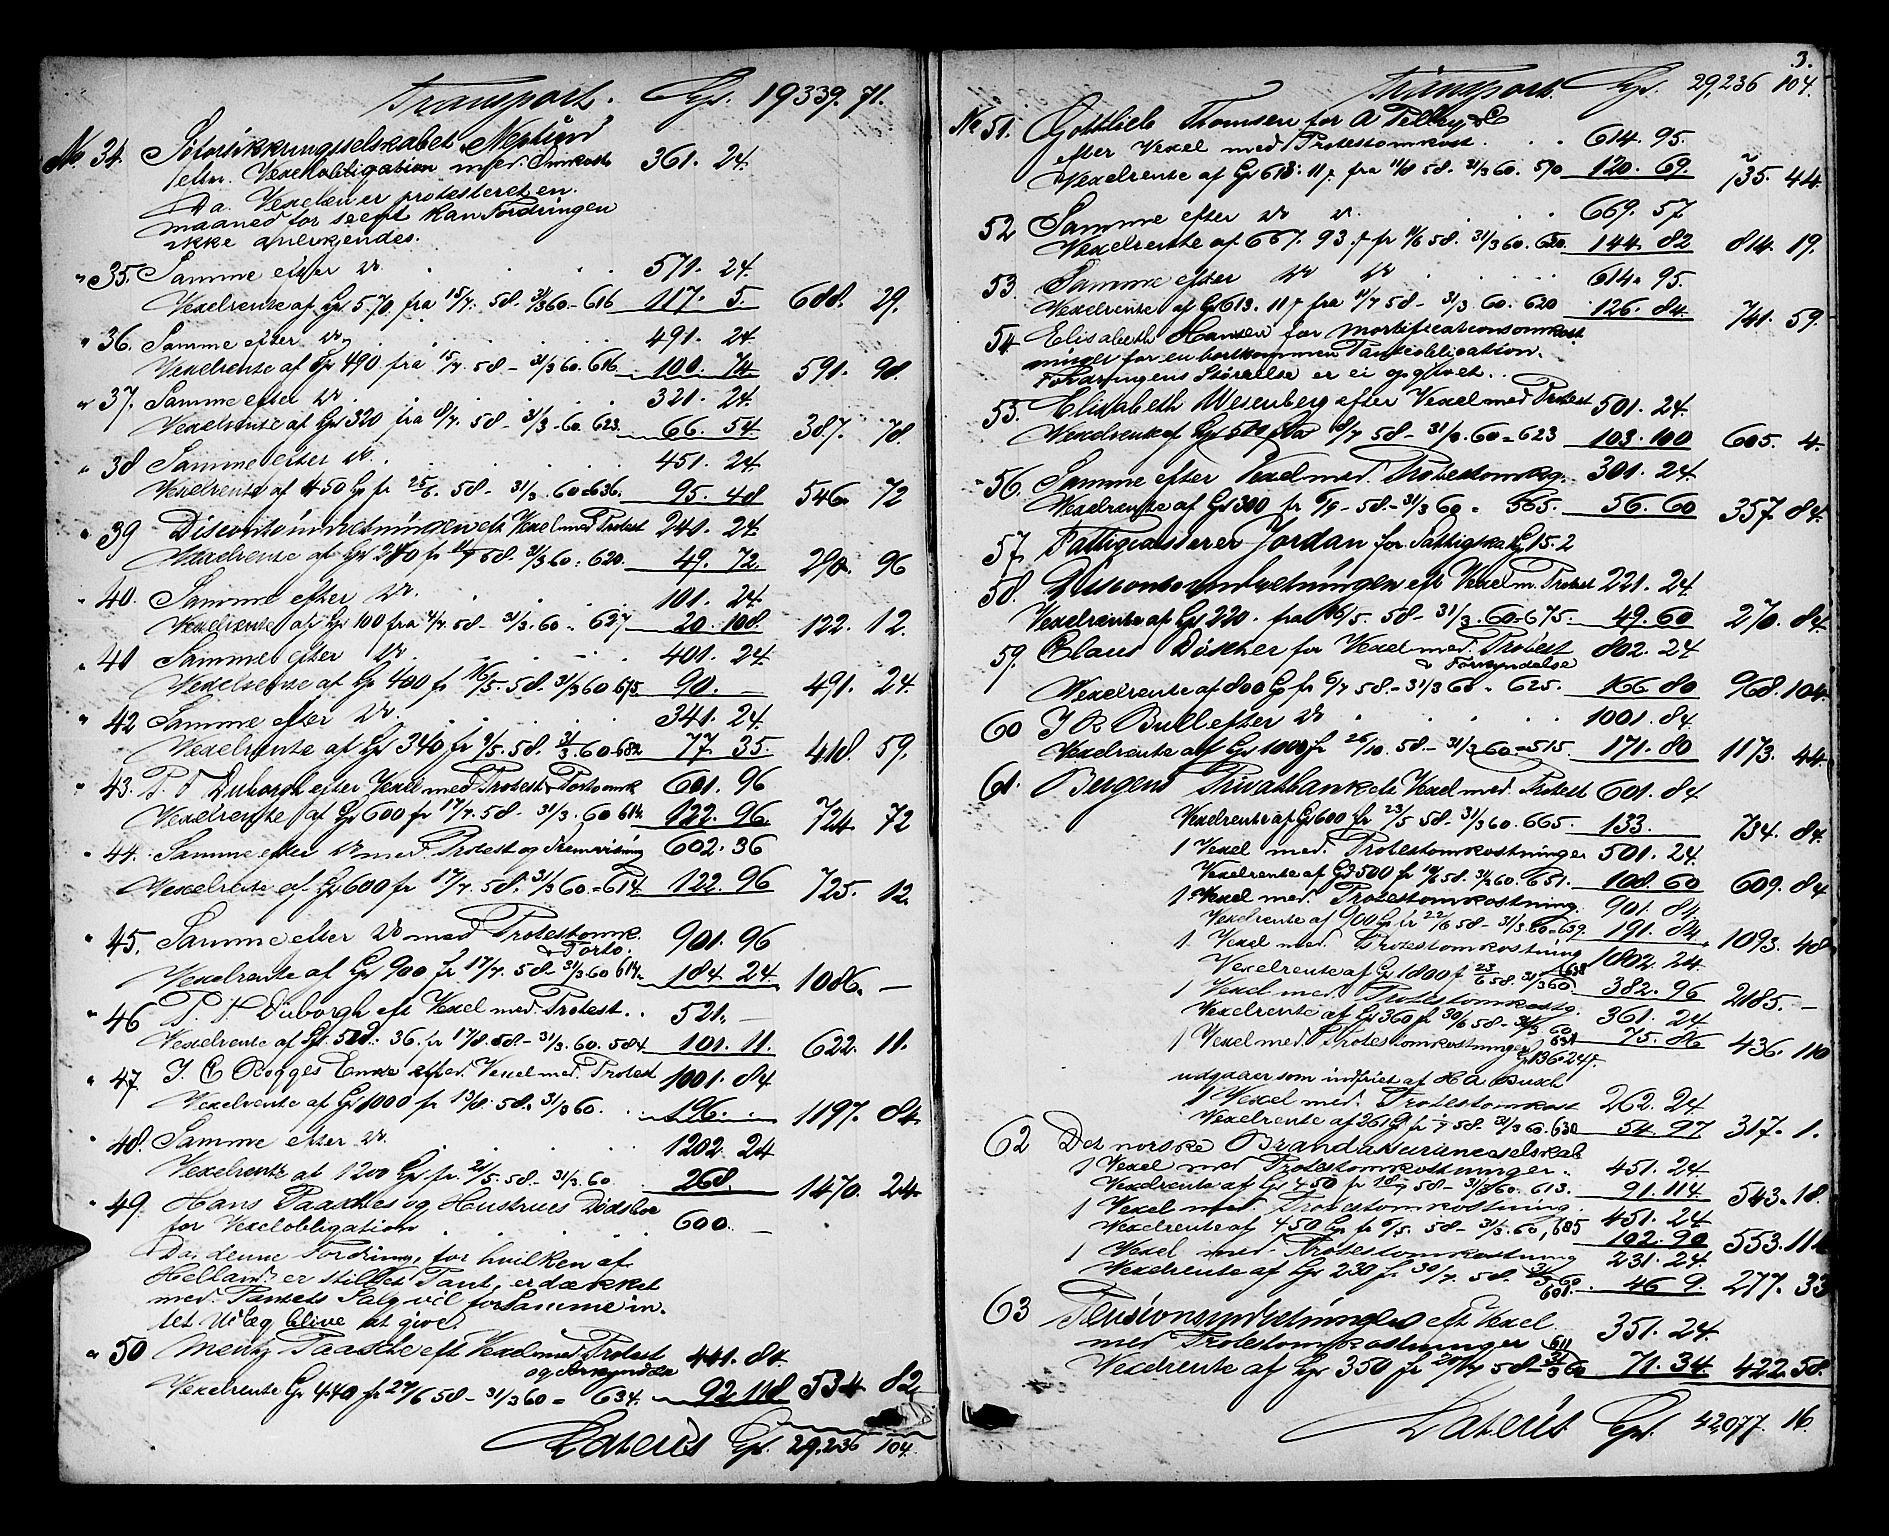 Transport. Spd. 19339. 71.
No 34. Søforsikkringsselskabet Neptun
efter Vexelobligation med Omkostn 361. 24.
Da Vexelen er protesteret en
maaned for seent kan Fordringen
ikke anerkjendes.
" 35. Samme efter do. 571. 24.
Vexelrente af Spd 570 fra 15/7. 58 - 31/3 60 - 616 117. 5. 688. 29.
" 36. Samme efter do. 491. 24.
Vexelrente af Spd 490 fra 15/7. 58 - 31/3 60. 616 100. 74. 591. 98.
" 37. Samme efter do. 321. 24.
Vexelrente af Spd 320 fra 8/7. 58 - 31/3 - 60. 623. 66. 54. 387. 78.
" 38 Samme efter do. 451. 24.
Vexelrente af 450 Spd fr 25/6. 58 - 31/3. 60 = 636. 95. 48 546. 72
" 39 Discontoindretningen eft Vexel med Protest 241. 24.
Vexelrente af Spd 240 fr 11/7 58. 31/3 60 = 620. 49. 72. 290. 96
" 40. Samme efter do. 101. 24.
Vexelrente af Spd 100 fra 4/7. 58 - 31/3. 60 = 627 20. 108. 122. 12.
" 41 Samme efter do. 401. 24
Vexelrente af Spd 400 fr 16/5. 58 - 31/3 60 675 90. — 491. 24.
" 42 Samme efter do. 341. 24.
Vexelrente af Spd 340 fr 9/5. 58. 31/3. 60 - 682. 77. 35. 418. 59.
" 43. P. T Duborgh efter Vexel med Protest & Portoomk 601. 96
Vexelrente af Spd 600 fr 17/7. 58 - 31/3. 60 614. 122. 96. 724. 72
" 44. Samme efter do med Protest og Fremvisning 602. 36
Vexelrente af Spd 600 fr 17/7. 58. 31/3 60 = 614. 122. 96 725. 12.
" 45. Samme efter do med Protestomk.
& Porto. 901. 96
Vexelrente af Spd 900 fr 17/7. 58 - 31/3 60 614. 184. 24. 1086. —
" 46 P. T Duborgh eft Vexel med Protest. 521. —
Vexelrente af Spd. 520. 36. fr 17/8. 58 - 31/3. 60. 584 101. 11. 622. 11.
" 47. J. C Rogges Enke efter Vexel med Protest 1001. 84
Vexelrente af Spd 1000 fr 13/8. 58. 31/3 60. 196. . 1197. 84.
" 48. Samme efter do. 1202. 24
Vexelrente af 1200 Spd fr. 21/5. 58 - 31/3. 60. 268. 1470. 24.
" 49. Hans Paasches og Hustrues Dødsboe
for Vexelobligation 600. —
Da denne Fordring, for hvilken af
Helland er stillet Pant, er dækket
med Pantets Salg vil for Samme in-
tet Udlæg blive at give.
" 50 Mentz Paasche eft Vexel med Protest 441. 84.
og Forkyndelse
Vexelrente Spd 440 fr 27/6 58 - 31/3 60 = 634. 92. 118 534. 82.
Lateris Spd. 29.236 104.
3.
Transport. Spd. 29,236 104.
No 51. Gottlieb Thomsen for A Tilley & Co
efter Vexel med Protestomkost. 614. 95.
Vexelrente af Spd 613. 11 ß. fra 11/8 58. 31/3 60. 590 120. 69. 735. 44.
52 Samme efter do do. 669. 57
Vexelrente af 667. 93 ß fr 11/6 58. 31/3 60. 650. 144. 82 814. 19.
53. Samme efter do do 614. 95.
Vexelrente af Spd 613. 11 ß fra 11/7 58 - 31/3. 60. 620 126. 84. 741. 59.
54. Elisabeth Hansen for Mortificationsomkost
mindt for en bortkommen Panteobligation.
Fordringens Størrelse er ei opgivet.
55. Elisabeth Wesenberg efter Vexel med Protest 501. 24.
Vexelrente af Spd 500 fra 8/7 58 - 31/3. 60 = 623 103. 100 605. 4.
" 56. Samme efter Vexel med Protestomkg. 301. 24.
Vexelrente af Spd 300 fr 6/9 - 58 - 31/3 60 = 565. 56. 60 357. 84.
57. Fattigcasserer Jordan for Fattigskat Spd 15. 2
58. Discontoindretningen eft Vexel m. Protest 221. 24
Vexelrente af Spd 220. fra 16/5. 58 - 31/3. 60 = 675. 49. 60 270. 84.
59. Claus Dischér for Vexel med Protest
& Forkyndelse 802. 24
Vexelrente af 800 Spd fr 6/7 58 - 31/3 60 = 625. 166 80 968. 104.
60 J R Bull efter do 1001. 84.
Vexelrente af Spd 1000 fr 26/10. 58 - 31/3 60 = 515. 171. 80 1173. 44.
61. Bergens Privatbank eft Vexel med Protest 601. 84
Vexelrente af Spd 600 fr 23/5 58 - 31/3 60. 665. 133. 734. 84.
1 Vexel med Protestomkostninger 501. 24.
Vexelrente af Spd 500 fr 10/6 58. 31/3 60. 651. 108. 60 609. 84
1 Vexel med Protestomkostning. 901. 84
Vexelrente af 900 Spd fr 22/6 58 - 31/3 60 = 639. 191. 84. 1093. 48
1. Vexel med Protestomkostning 1802. 24.
Vexelrente af Spd 1800 f 23/6 58. 31/3 60. 638 382. 96 2185. —
1 Vexel med Protestomkostg. 361. 24
Vexelrente af Spd 360 fr 30/6 58 - 31/3 60 631 75. 86 436. 110
1 Vexel med Protestomkostninger Spd 136. 24 ß.
udgaaer som indfriet af H A Busch
1 Vexel med Protestomkost 262. 24
Vexelrente af 261 Spd 58. 31/3 60. 630 54. 97 317. 1.
62 Det norske Brandassuranceselskab
1 Vexel med Protestomkostninger. 451. 24
Vexelrente af Spd 450 fr 18/7 58 - 31/3 60. 613. 91. 114. 543. 18.
1 Vexel med Protestomkostning. 451. 24
Vexelrente af 450 Spd fr 6/5. 58 - 31/3. 60, 685 102. 90 553. 114
1 Vexel med Protestomkostning 231. 24.
Vexelrente af Spd 230 fr 30/7. 58. 31/3 60 601. 46 9. 277. 33
63 Pensionsindretningen eft Vexel
med Protestomkostninger 351. 24.
Vexelrente af Spd 350 fr 20/7 58 - 31/3 60 611 71. 34. 422. 58.
Lateris Spd. 42,077. 16.